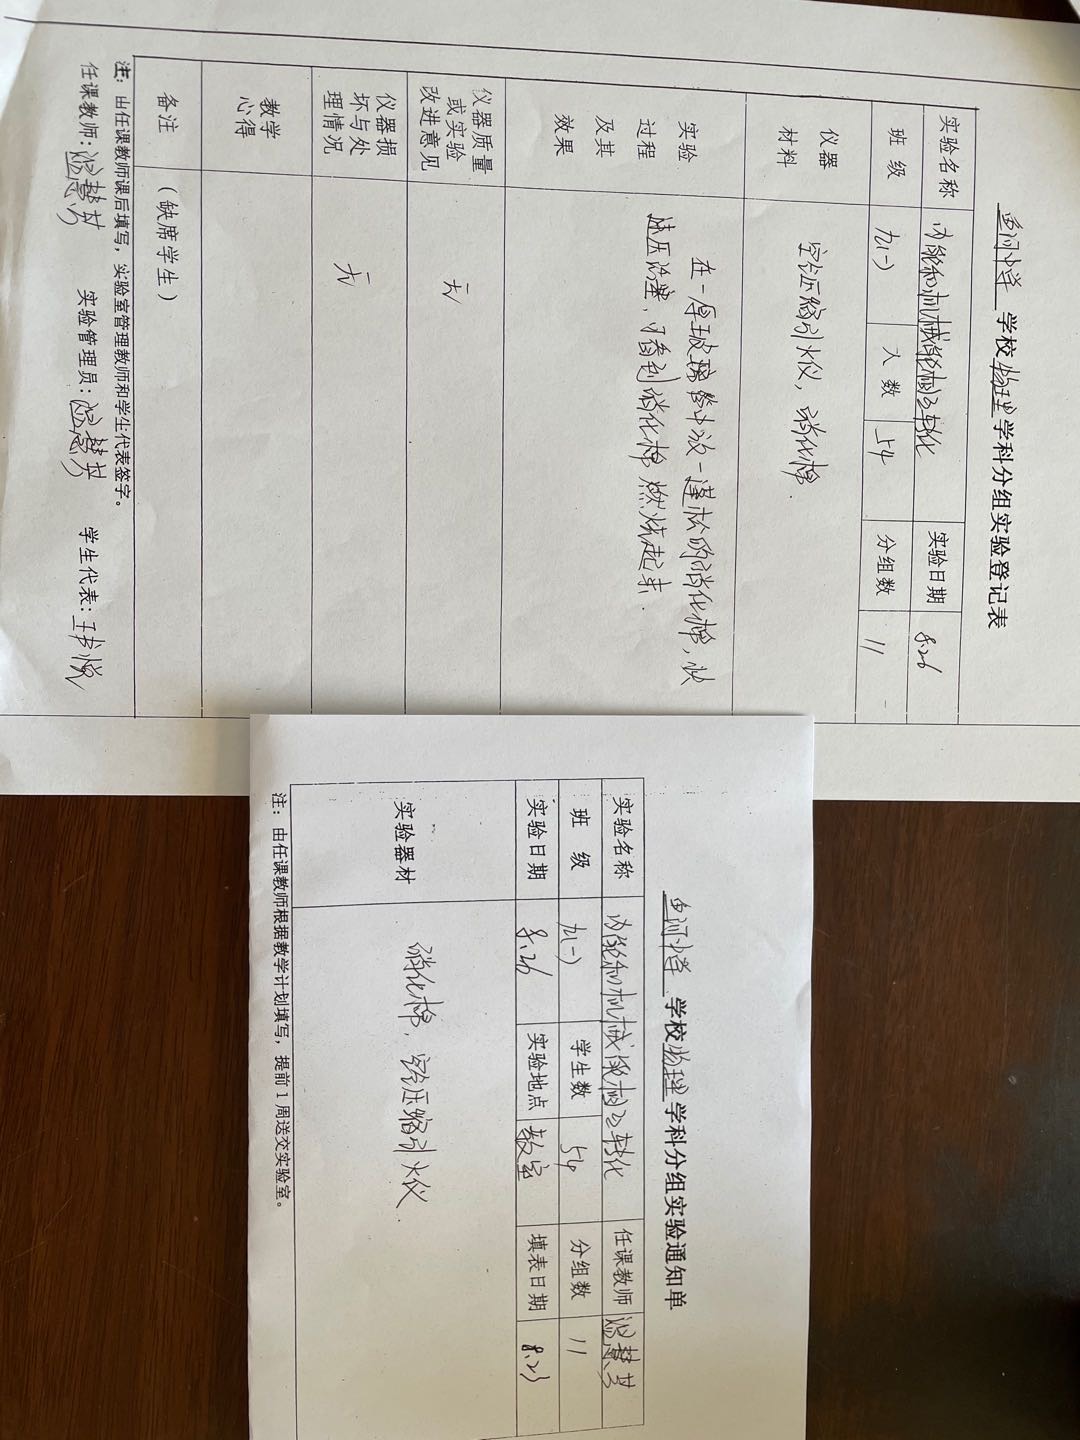 鱼河中学 学校物理学科分组实验登记表
实验名称 内能和机械能相互转化 实验日期 8.26
班 级 九(一) 人 数 54 分组数 11
仪器材料 空气压缩引火仪，硝化棉.
实验过程及其效果 在一厚玻璃管中放一蓬松的硝化棉，快
速压活塞，可看到硝化棉燃烧起来.
仪器质量或实验改进意见 无
仪器损坏与处理情况 无
教学心得
备注 （缺席学生）
注：由任课教师课后填写，实验室管理教师和学生代表签字。
任课教师： 实验管理员： 学生代表：王书悦
鱼河中学 学校物理学科分组实验通知单
实验名称 内能和机械能相互转化 任课教师
班 级 九(一) 学生数 54 分组数 11
实验日期 8.26 实验地点 教室 填表日期 8.23
实验器材 硝化棉，空气压缩引火仪.
注：由任课教师根据教学计划填写，提前1周送交实验室。